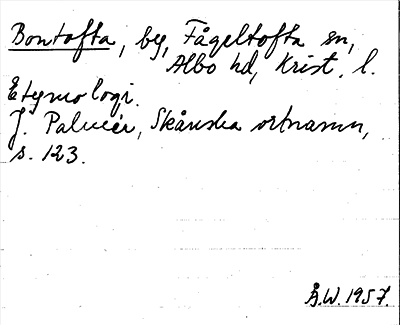 Bontofta, by, Fågeltofta sn,
Albo hd, Krist. l.
Etymologi.
J. Palmér, Skånska ortnamn,
s. 123.
Å.W. 1957.